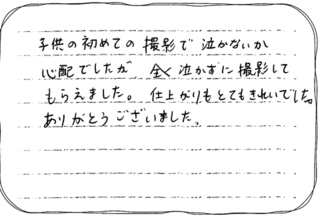 子供の初めての撮影で泣かないか
心配でしたが、全く泣かずに撮影して
もらえました。仕上がりもとてもきれいでした。
ありがとうございました。